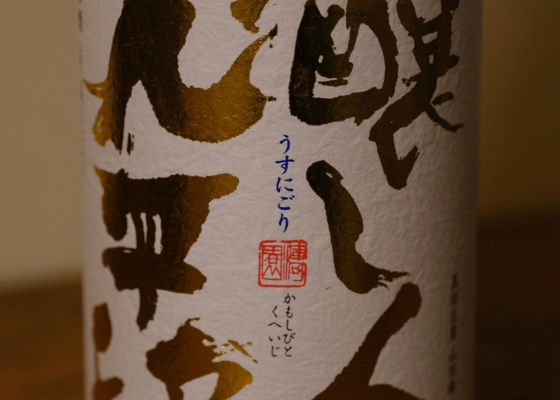 醸し人
うすにごり
かもしびと
くへいじ
九平次